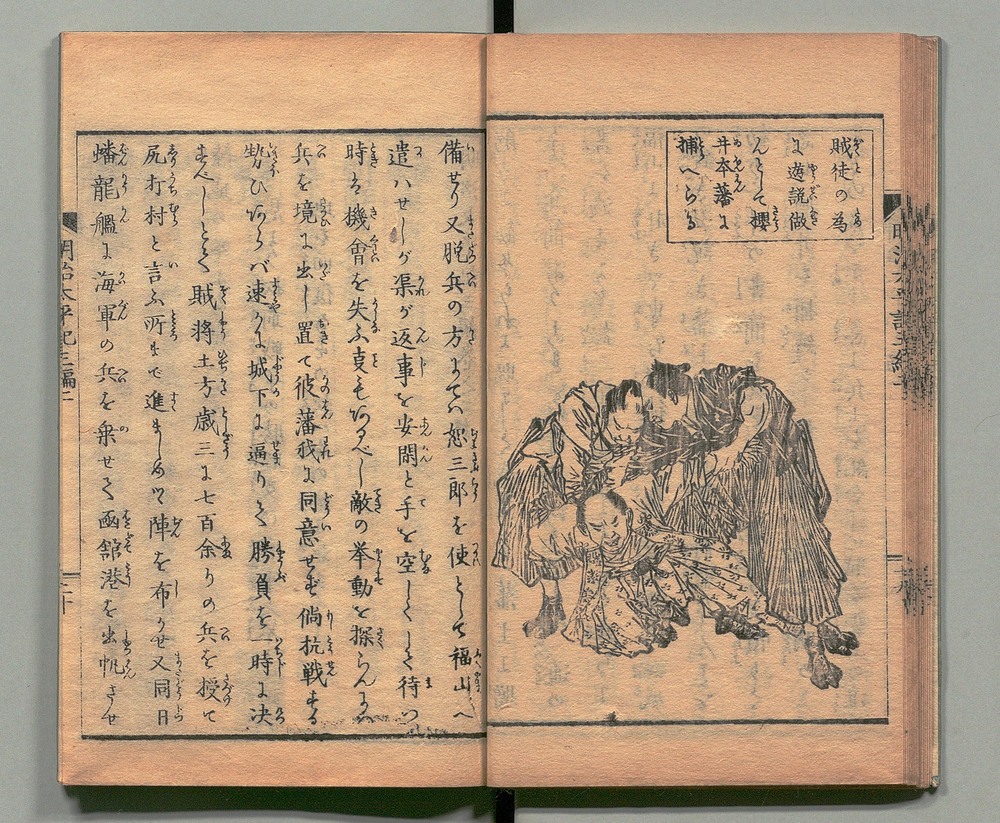 賊徒の為
に遊説做
んとして櫻
井本藩に
捕へらる
備せり又脱兵の方にてハ恕三郎を使として福山へ
遣ハせしが渠が返事を安閑と手を空しくして待つ
時ハ機會を失ふ㕝も有べし敵の挙動を探らん為
兵を境に出し置て彼藩我に同意せず倘抗戦する
勢ひあらバ速かに城下に逼りて勝負を一時に决
すべしとて賊将土方歳三に七百余りの兵を授て
尻打村と言ふ所まで進ましめツ陣を布かせ又同日
蟠龍艦に海軍の兵を乗せて函舘港を出帆させ
明治太平記三編二
二十